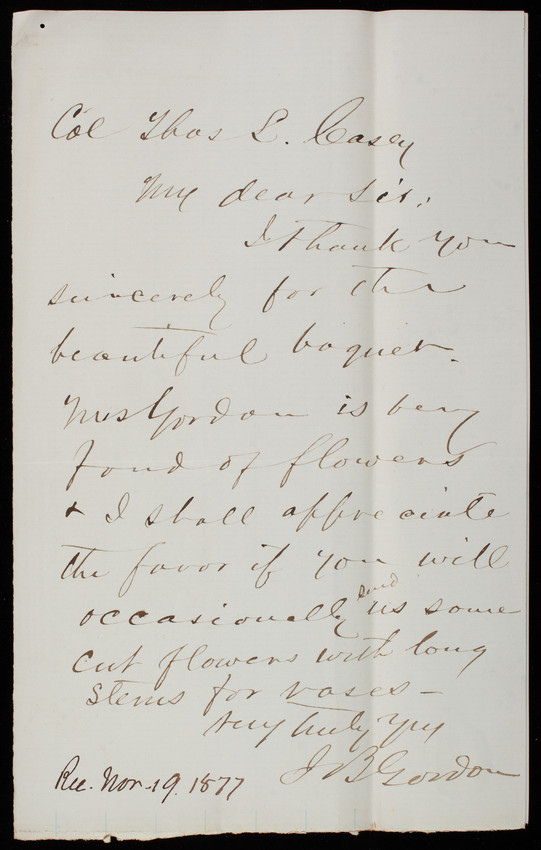 Col Thos L. Casey
My dear Sir:
I thank you
sincerely for the
beautiful boquet.
Mrs Gordon is very
fond of flowers
& I shall appreciate
the favor if you will
occasionally send us some
cut flowers with long
stems for vases –
Very truly Yrs
J B Gordon
Rec. Nov. 19. 1877